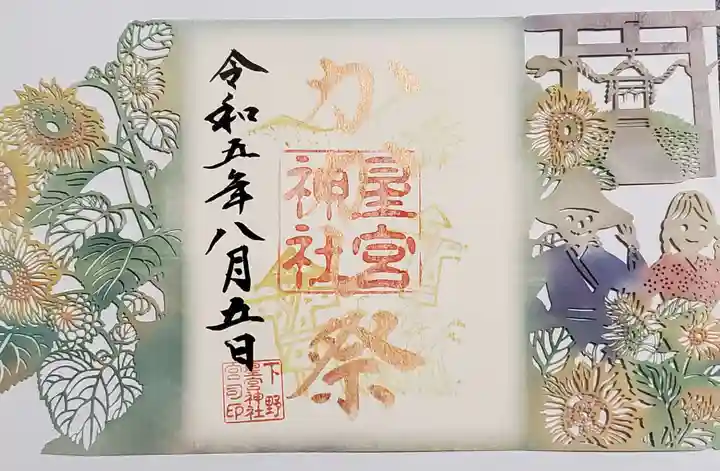 か
祭
星宮
神社
令和五年八月五日
下野
星宮神社
宮司印